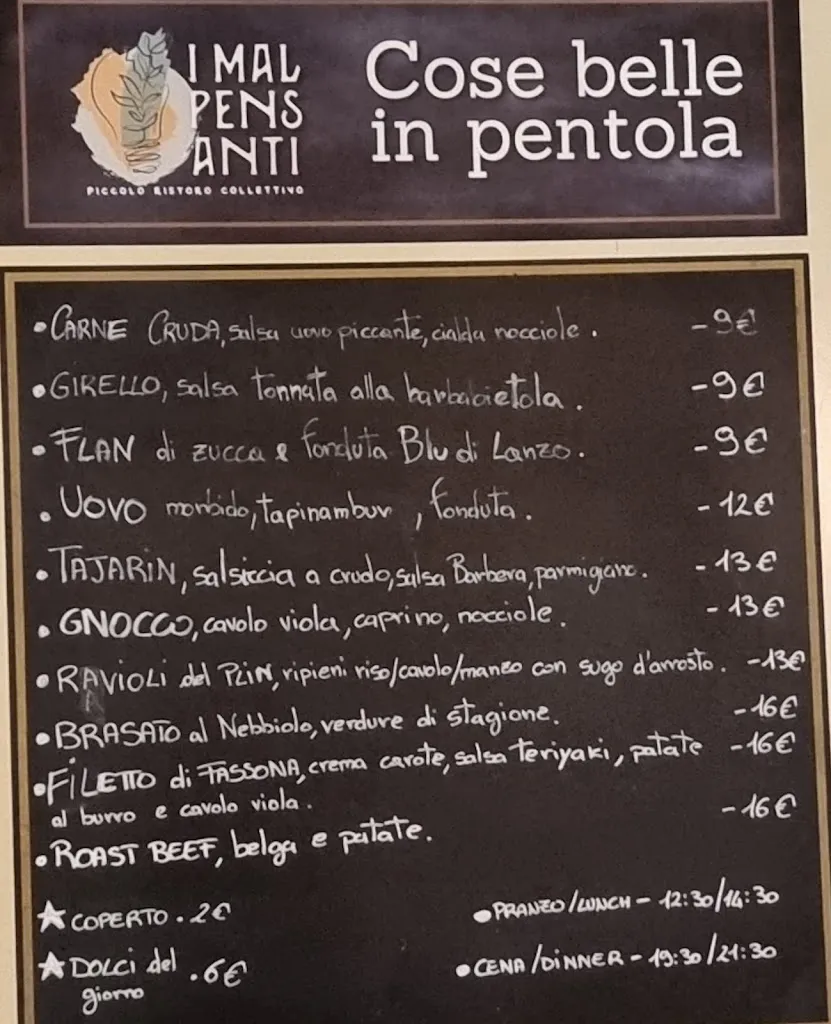 I MAL
PENS
ANTI
PICCOLO RISTORO COLLETTIVO
Cose belle
in pentola
• CARNE CRUDA, salsa uovo piccante, cialda nocciole. - 9€
• GIRELLO, salsa tonnata alla barbabietola. - 9€
• FLAN di zucca e fonduta Blu di Lanzo. - 9€
• UOVO morbido, tapinambur, fonduta. - 12€
• TAJARIN, salsiccia a crudo, salsa Barbera, parmigiano. - 13€
• GNOCCO, cavolo viola, caprino, nocciole. - 13€
• RAVIOLI del PLIN, ripieni riso/cavolo/manzo con sugo d'arrosto. - 13€
• BRASATO al Nebbiolo, verdure di stagione. - 16€
• FILETTO di FASSONA, crema carote, salsa teriyaki, patate - 16€
al burro e cavolo viola.
• ROAST BEEF, belga e patate. - 16€
★ COPERTO. 2€
★ DOLCI del . 6€
giorno
• PRANZO/LUNCH - 12:30/14:30
• CENA/DINNER - 19:30/21:30